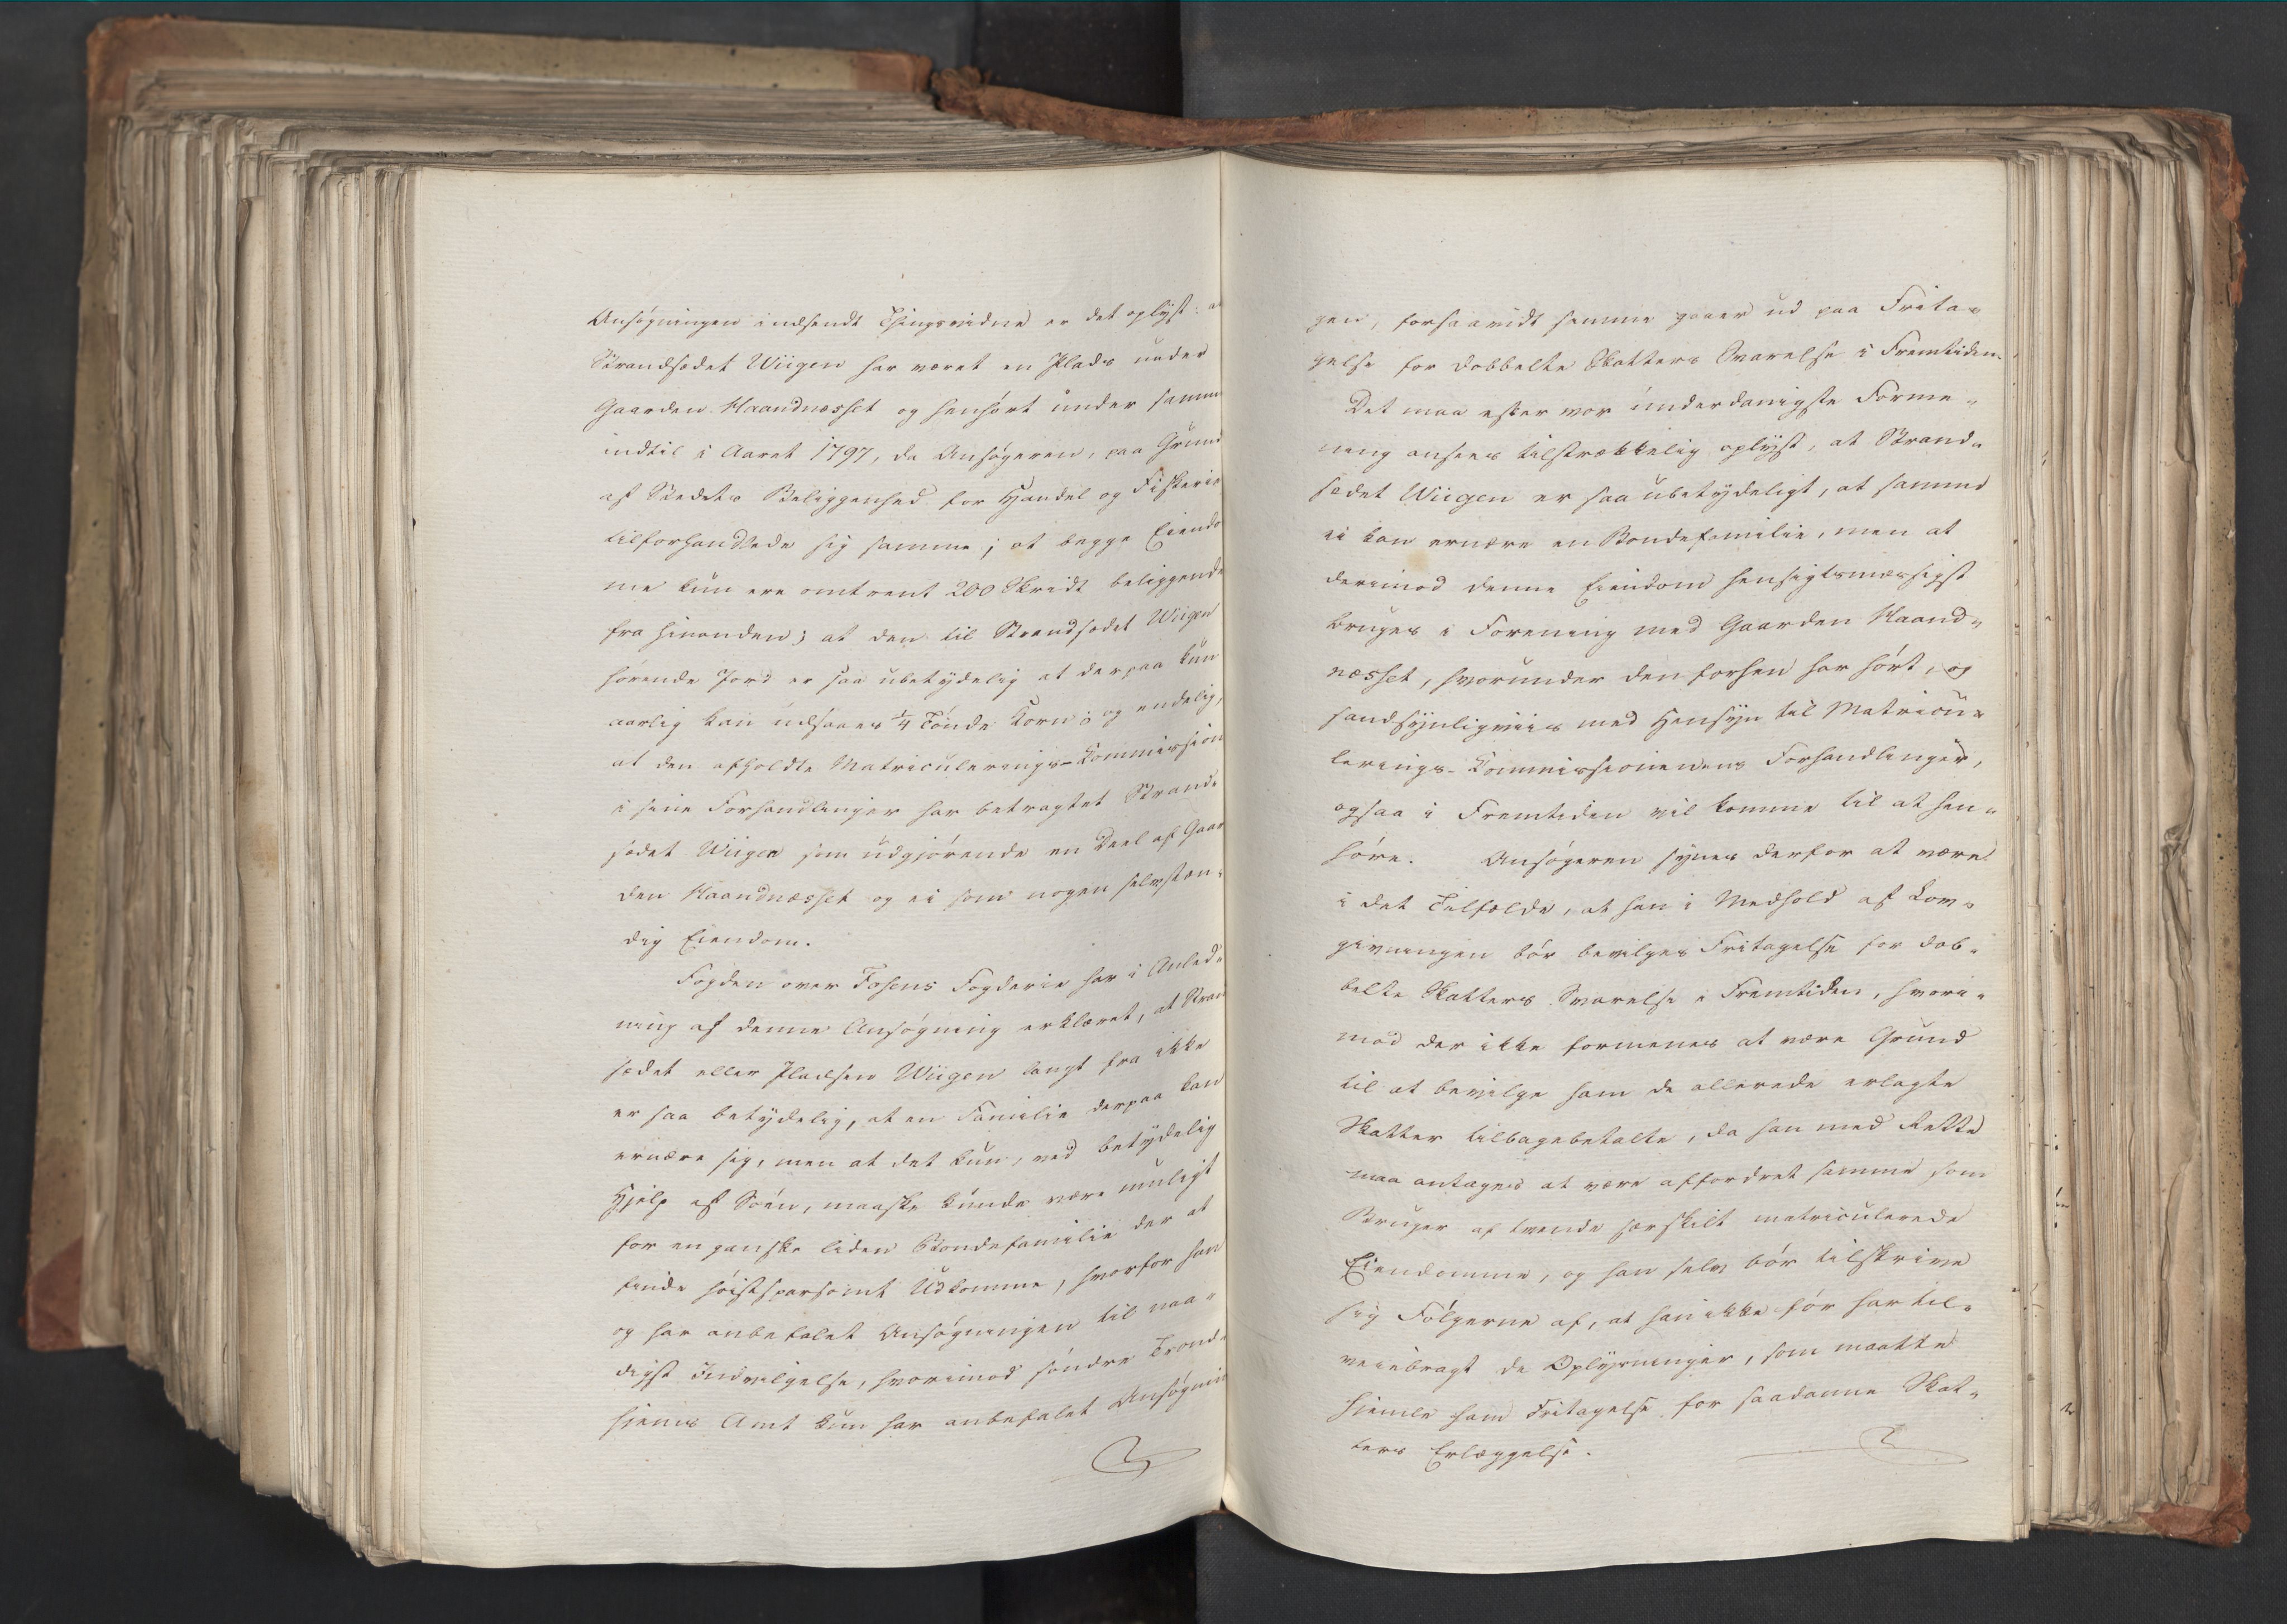 Ansøgningen indsendt Thingsvidne er det oplyst: at
Strandsædet Wiigen har været en Plads under
Gaarden Haandnæsset og henhørt under samme
indtil i Aaret 1797, da Ansøgeren, paa Grund
af Stedets Beliggenhed for Handel og Fiskerie
tilforhandlede sig samme; at begge Eiendo
me kun ere omtrent 200 Skridt beliggende
fra hinanden; at den til Strandsædet Wiigen
hørende Jord er saa ubetydelig at derpaa kun
aarlig kan udsaaes 1/4 Tønde Korn; og endelig,
at den afholdte Matriculerings-Kommission
i sine Forhandlinger har betragtet Strand-
sædet Wiigen som udgjørende en Deel af Gaar
den Haandnæsset og ei som nogen selvstæn-
dig Eiendom.
Fogden over Fosens Fogderie har i Anled-
ning af denne Ansøgning erklæret, at Stran
sædet eller Pladsen Wiigen langt fra ikke
er saa betydelig, at en Familie derpaa kan
ernære sig, men at det kun, ved betydelig
Hjelp af Søen, maaske kunde være muligt
for en ganske liden Bondefamilie der at
finde høistsparsomt Udkomme, hvorfor han
og har anbefalet Ansøgningen til naa-
digst Indvilgelse, hvorimod søndre Trond-
hjems Amt kun har anbefalet Ansøgnin
gen, forsaavidt samme gaaer ud paa Frita-
gelse for dobbelte Skatters Svarelse i Fremtiden.
Det maa efter vor underdanigste Forme-
ning ansees tilstrækkelig oplyst, at Strand-
sædet Wiigen er saa ubetydeligt, at samme
ei kan ernære en Bondefamilie, men at
derimod denne Eiendom hensigtsmæssigst
bruges i Forening med Gaarden Haand-
næsset, hvorunder den forhen har hørt, og
sandsynligviis med Hensyn til Matricu-
lerings-Kommissionens Forhandlinger,
ogsaa i Fremtiden vil komme til at hen-
høre. Ansøgeren synes derfor at være
i det Tilfælde, at han i Medhold af Lov-
givningen bør bevilges Fritagelse for dob-
belte Skatters Svarelse i Fremtiden, hvori-
mod der ikke formenes at være Grund
til at bevilge ham de allerede erlagte
Skatter tilbagebetalte, da han med Rette
maa antages at være affordret samme som
Bruger af tvende særskilt matriculerede
Eiendomme, og han selv bør tilskrive
sig Følgerne af, at han ikke før har til-
veiebragt de Oplysninger, som maatte
hjemle ham Fritagelse for saadanne Skat-
ters Erlæggelse.